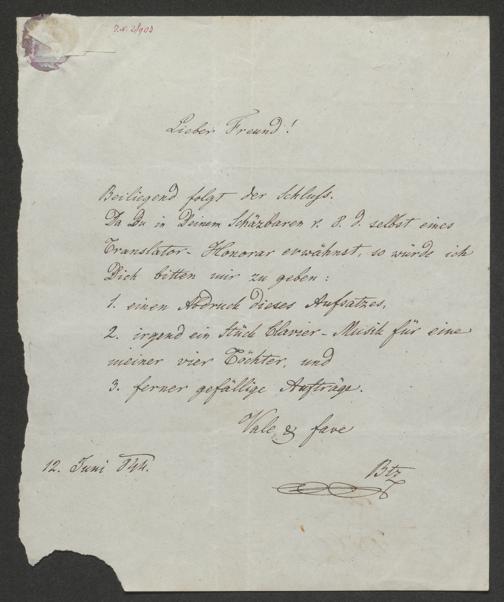 Lieber Freund!
Beiliegend folgt der Schluß.
Da Du in Deinem Schäzbaren v. 8. d. selbst eines
Translator-Honorar erwähnst, so würde ich
Dich bitten mir zu geben:
1. einen Abdruck dieses Aufsatzes,
2. irgend ein Stück Clavier-Musik für eine
meiner vier Töchter, und
3. ferner gefällige Aufträge.
Vale & fave
12. Juni 844.
Btz